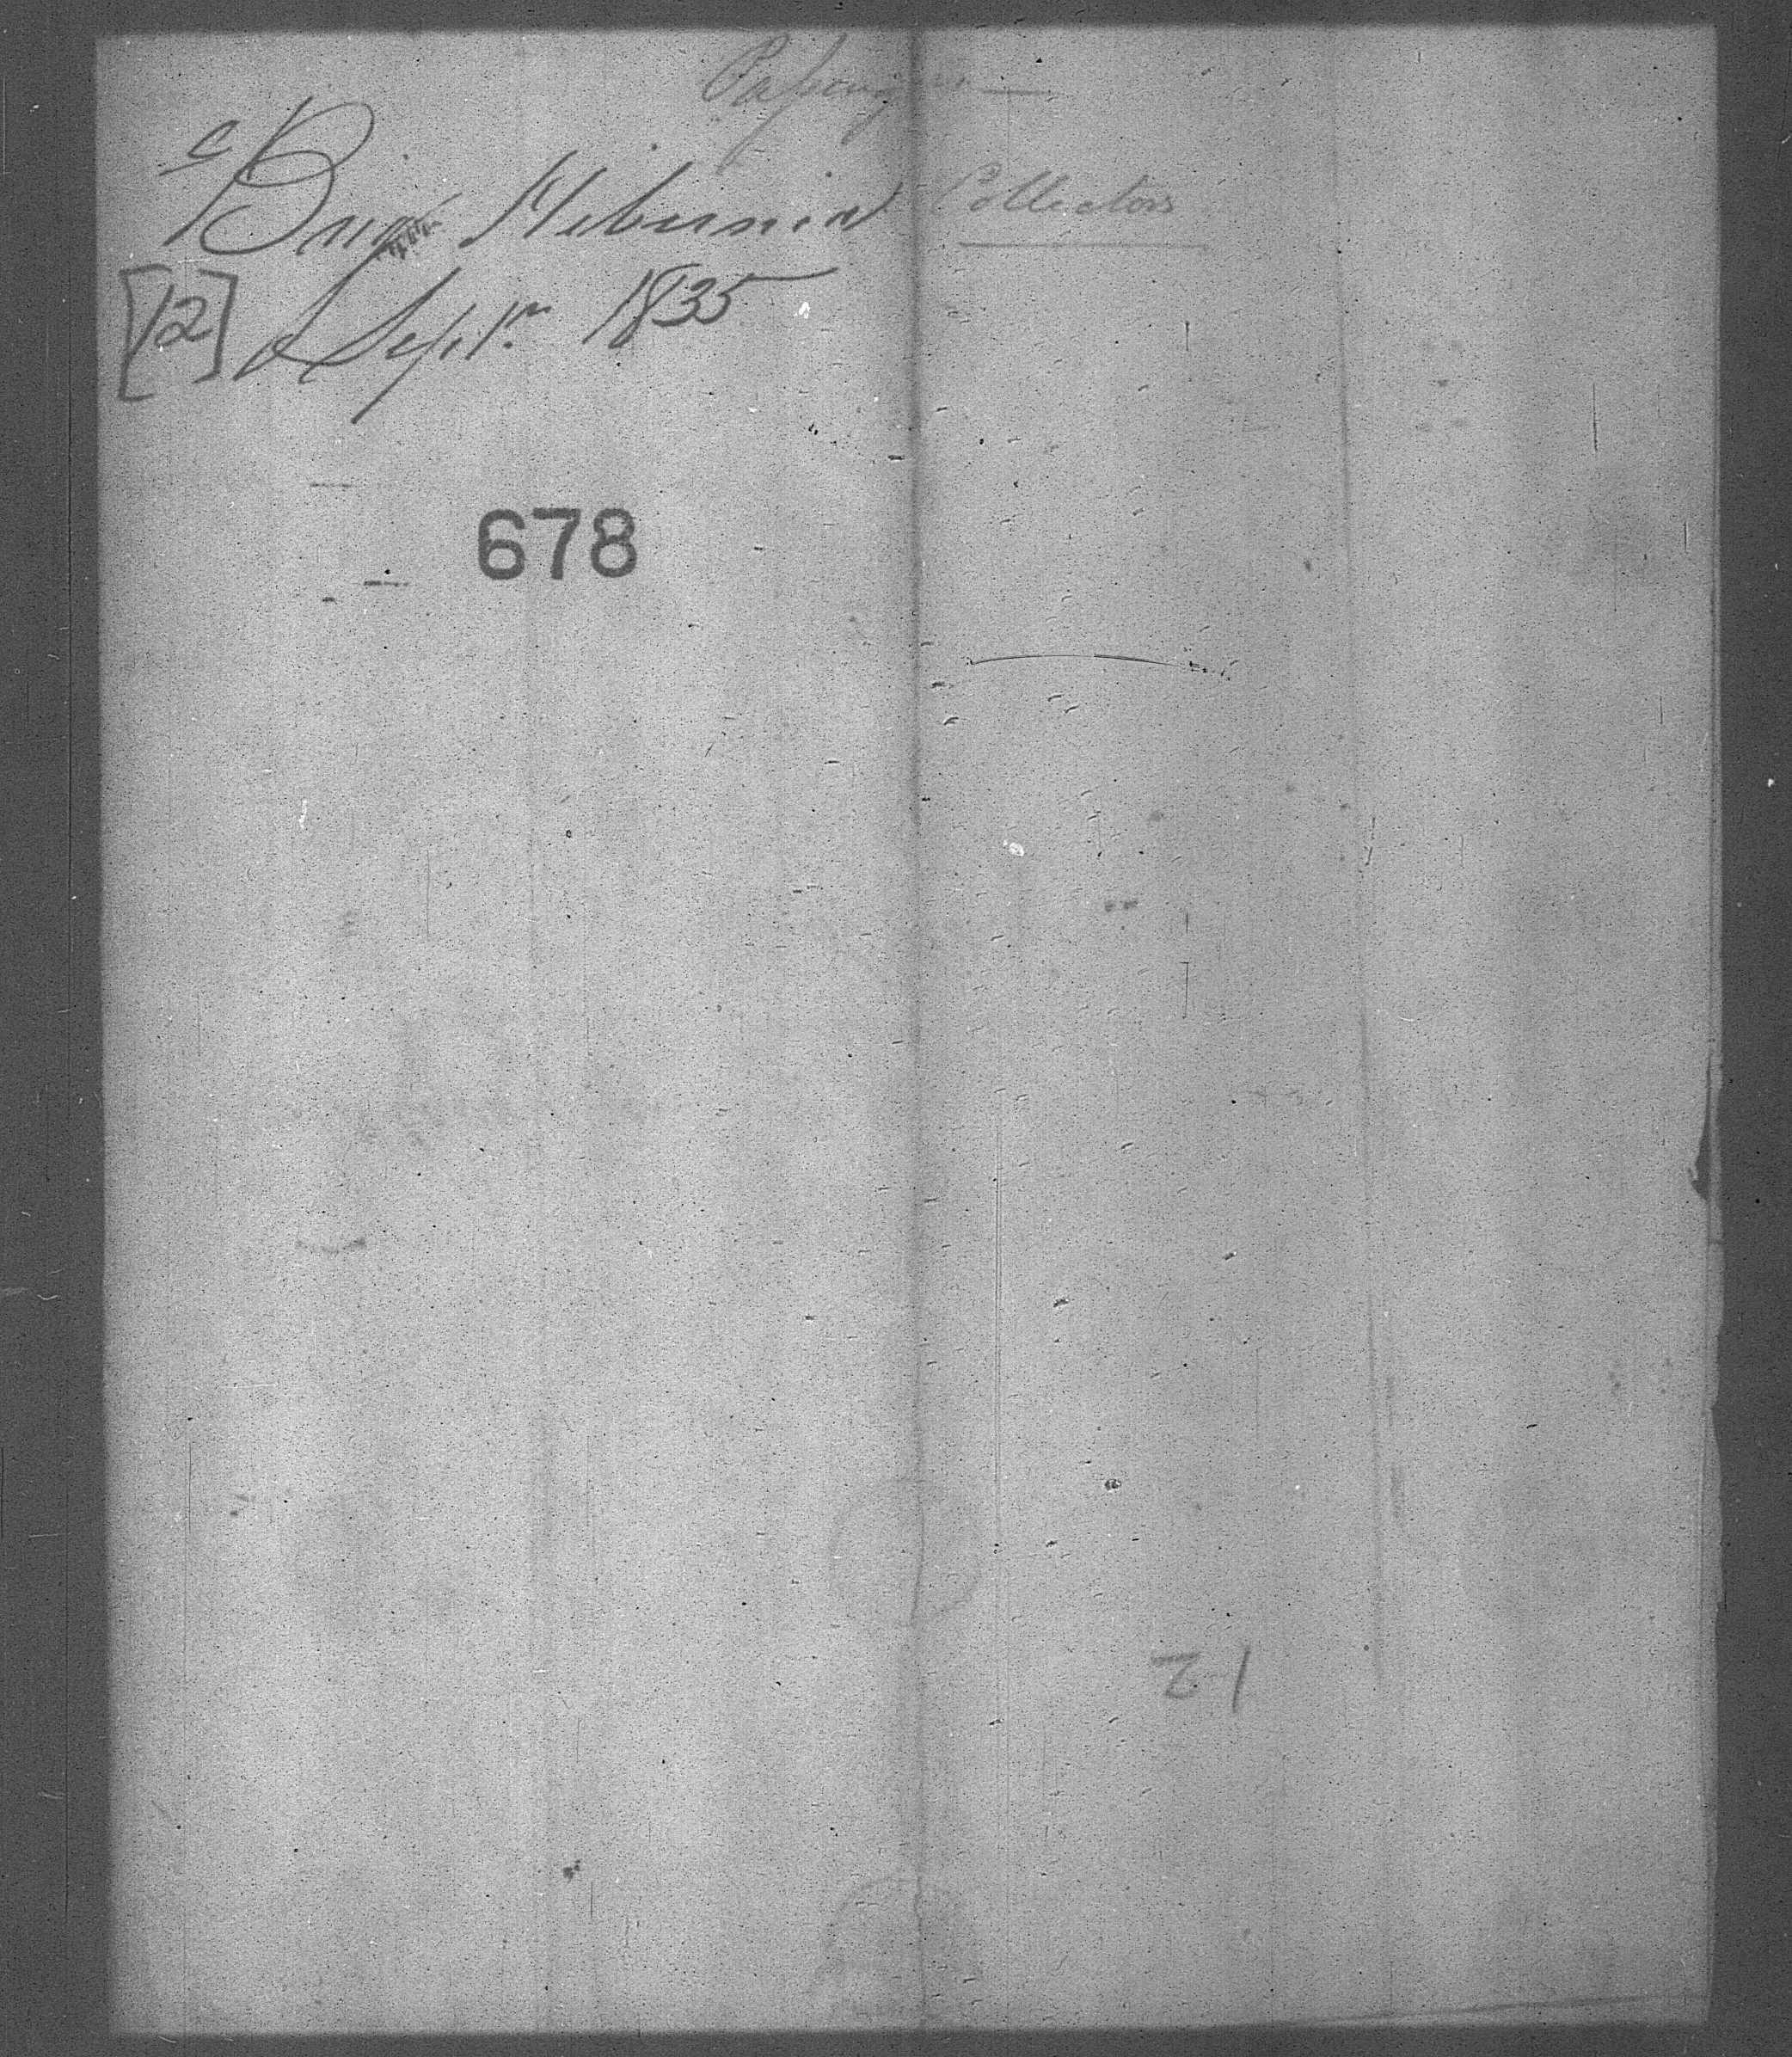 C
Brig Hibernia
Collectors
[12] Sept.r 1835
678
12